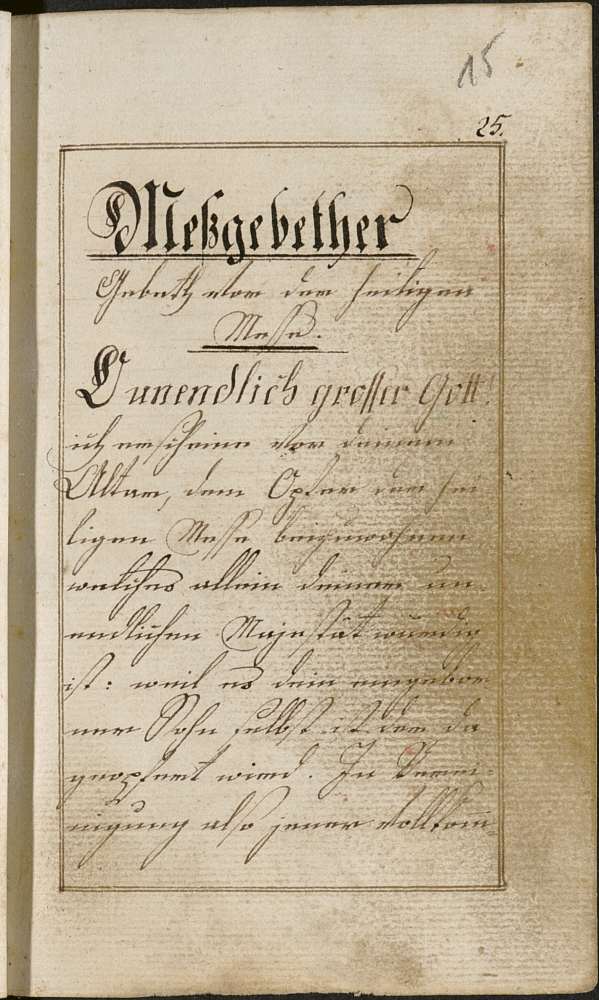 15
25.
Meßgebether
Gebeth vor der heiligen
Messe.
O unendlich grosser Gott!
ich erscheine vor deinem
Altar, dem Opfer der hei
ligen Messe beizuwohnen
welches allein deiner un
endlichen Majestät wuerdig
ist: weil es dein eingebor
ner Sohn selbst ist der da
geopfert wird. In Verei-
nigung also jener vollkom-